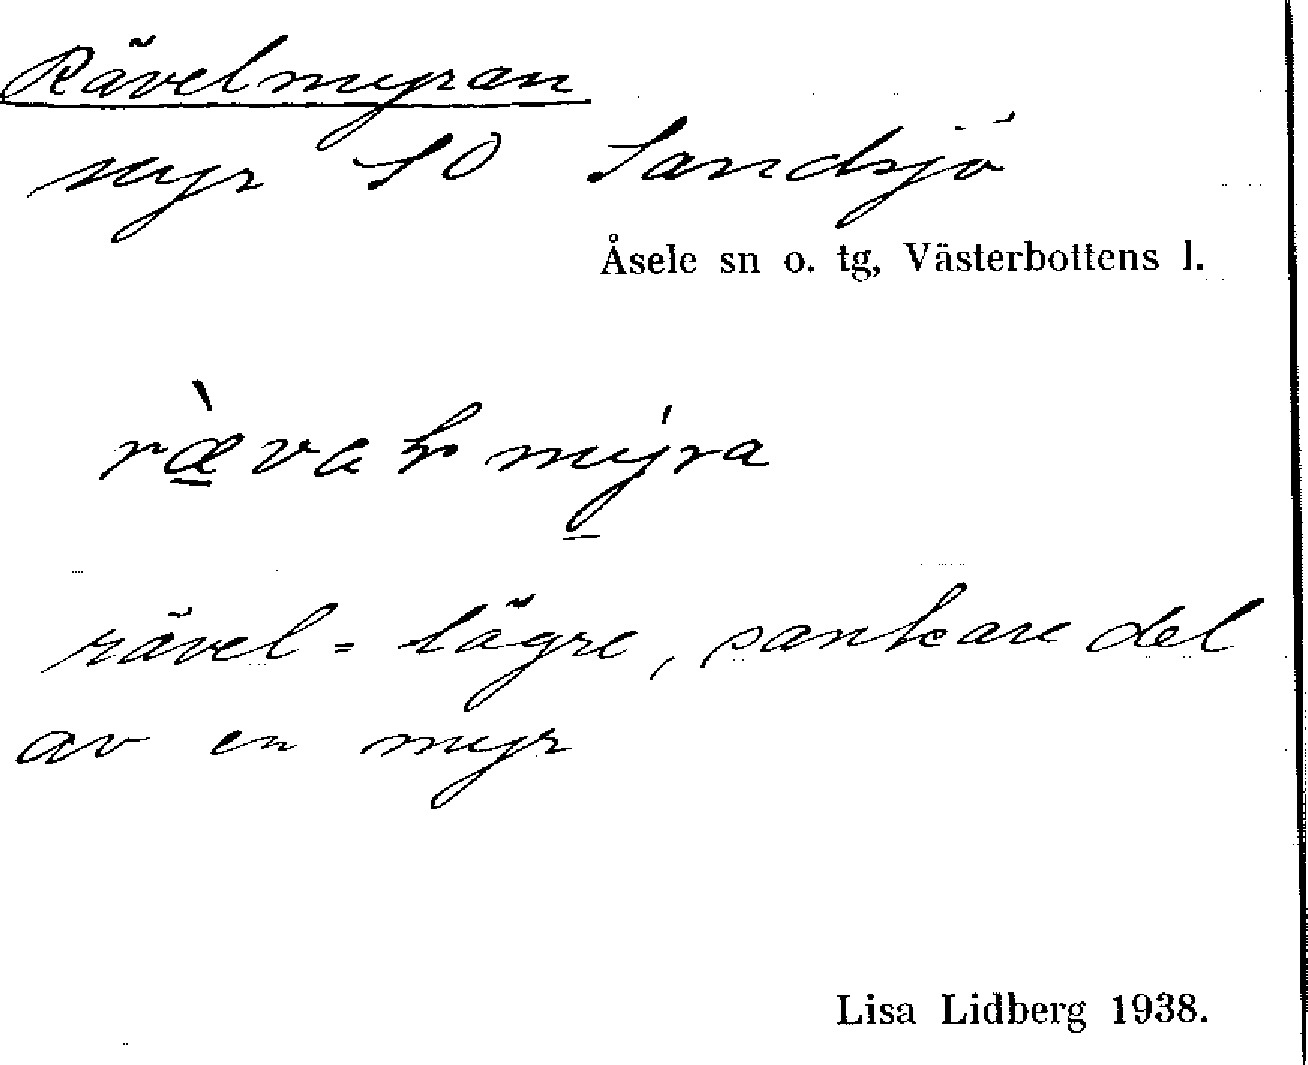 Rävelmyran
myr SO Sandsjö
Åsele sn o. tg, Västerbottens l.
rævaɫmýra
rävel = lägre, sankare del
av en myr
Lisa Lidberg 1938.